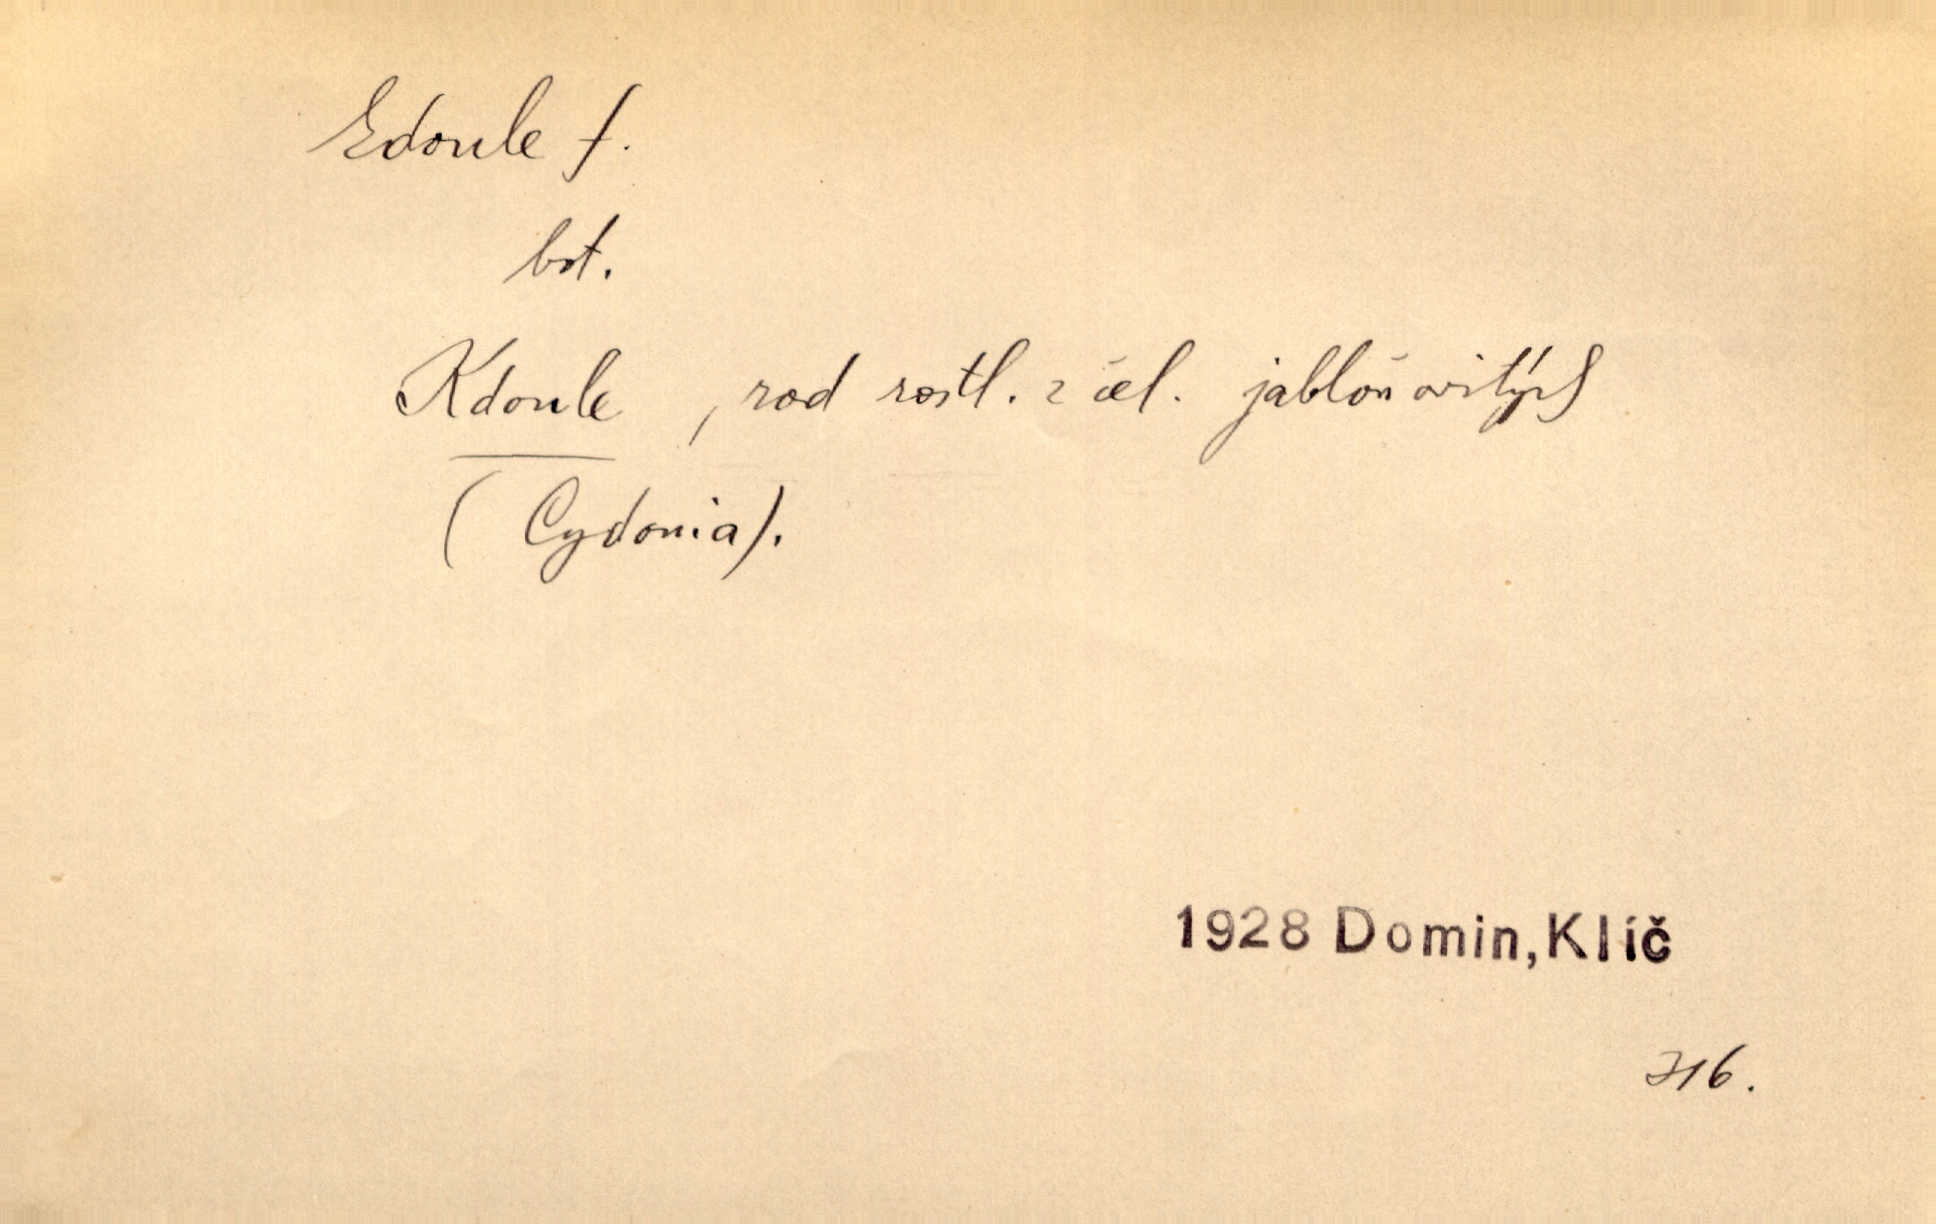 kdoule f.
bot.
Kdoule, rod rostl. z čel. jabloňovitých
(Cydonia).
1928 Domin, Klíč